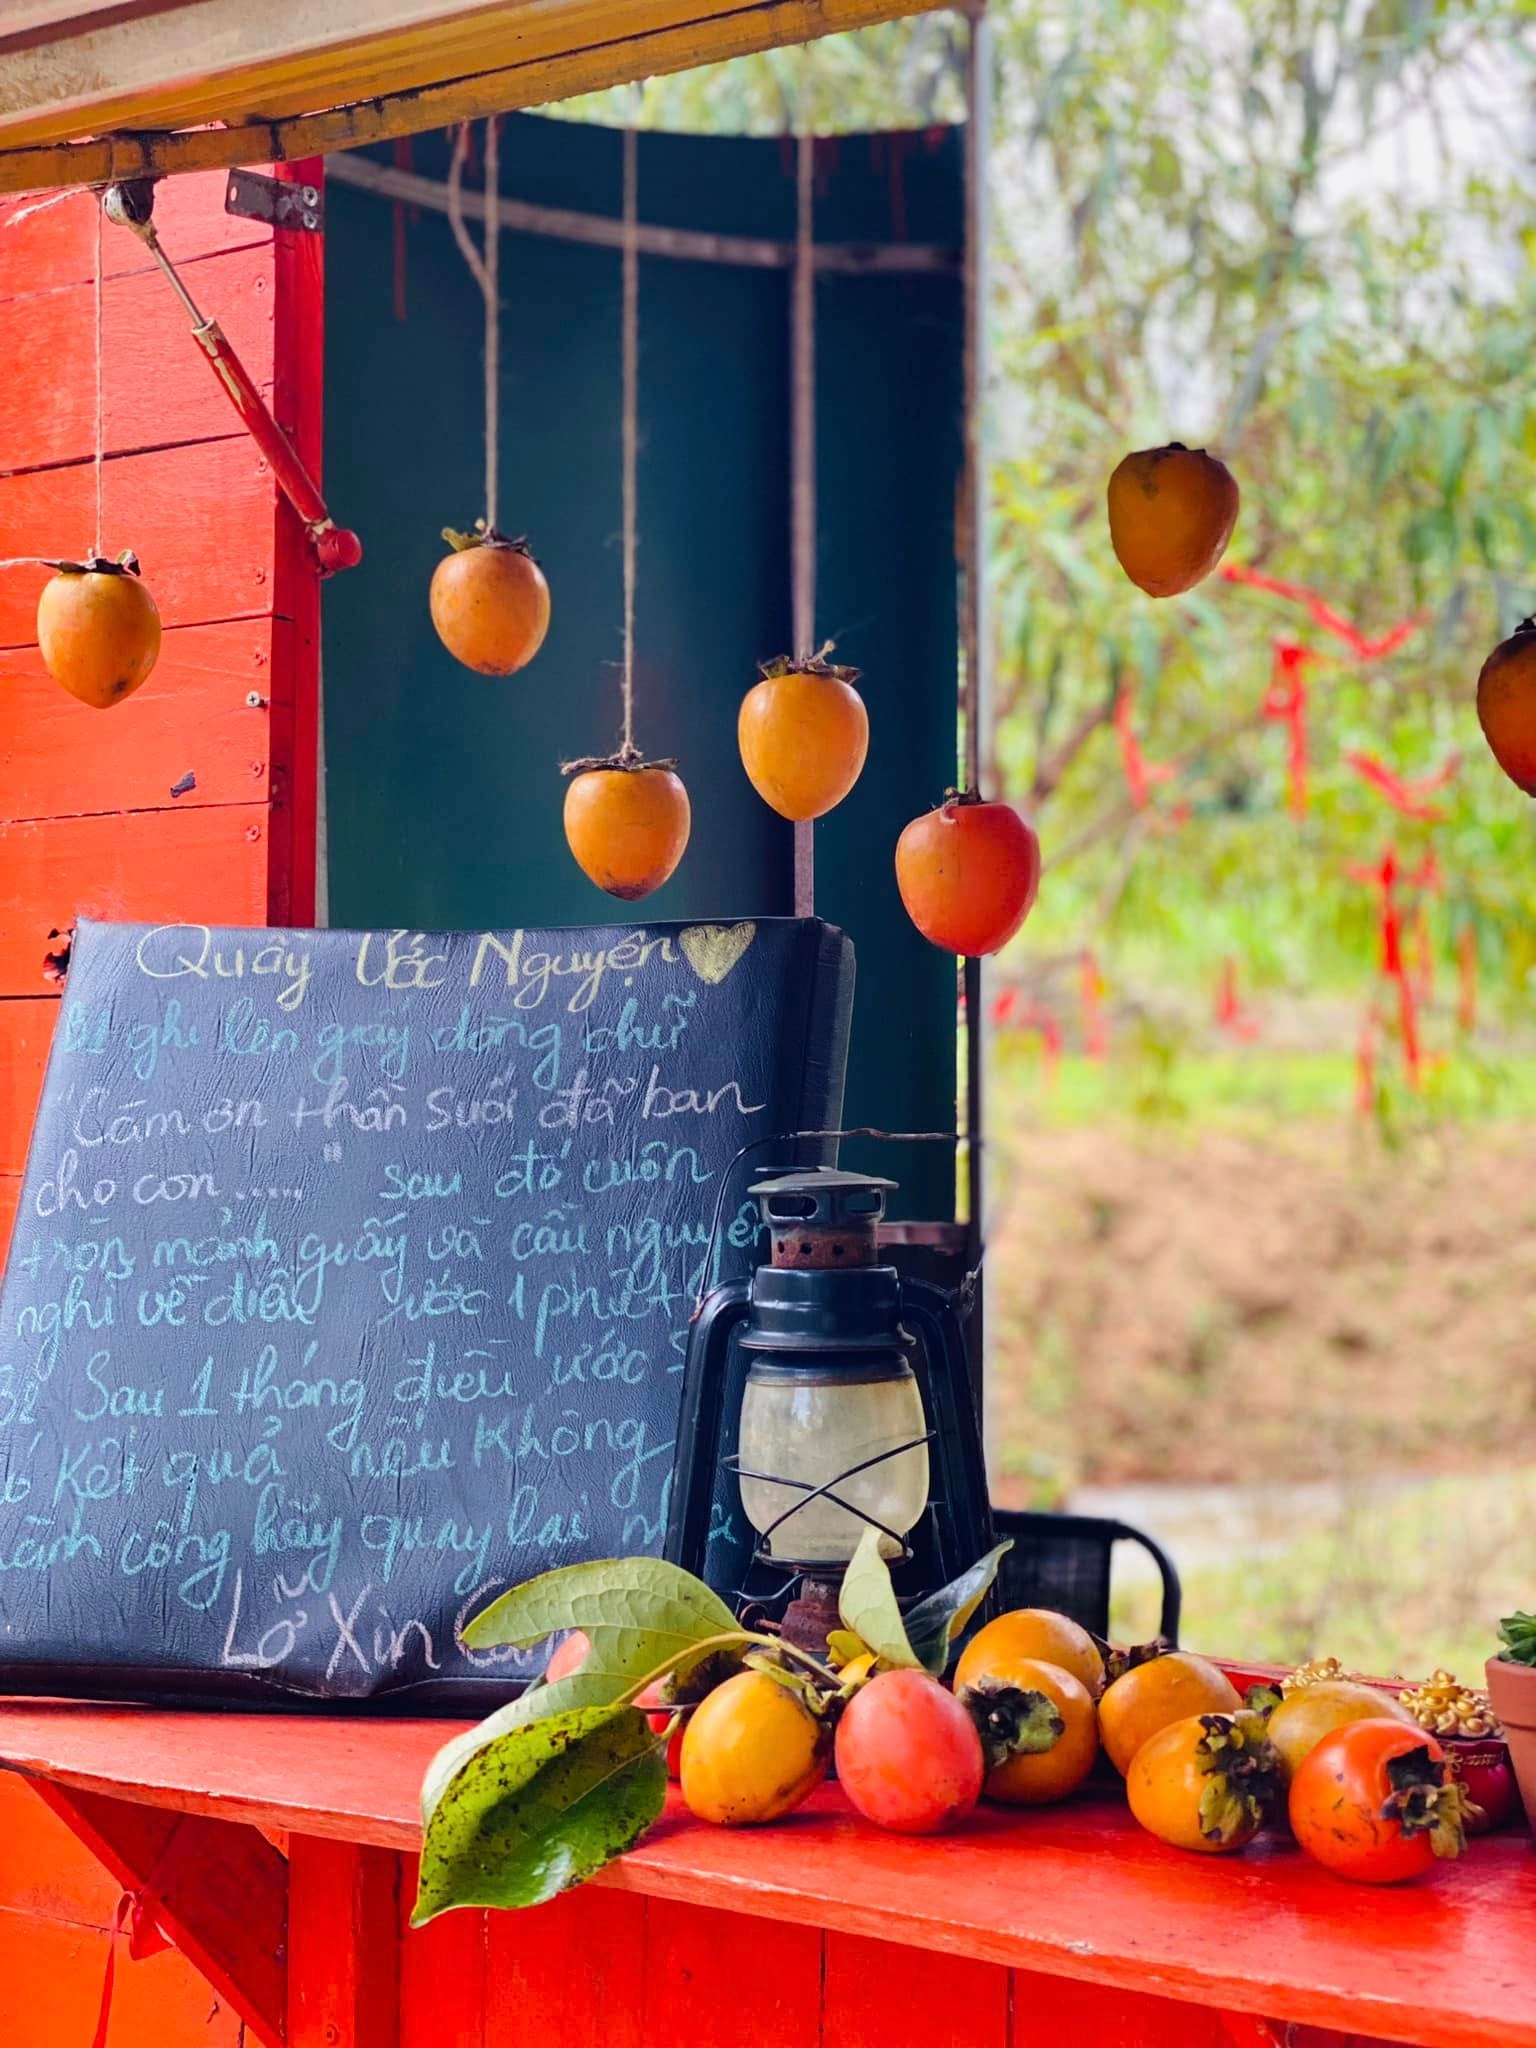 Quầy Ước Nguyện
B1 ghi lên giấy dòng chữ
"Cảm ơn thần Suối đã ban
cho con ..... " sau đó cuộn
tròn mảnh giấy và cầu nguyện
nghỉ về điều ước 1 phút
B2 Sau 1 tháng điều ước
có kết quả nếu không
thành công hãy quay lại
Lỡ Xin